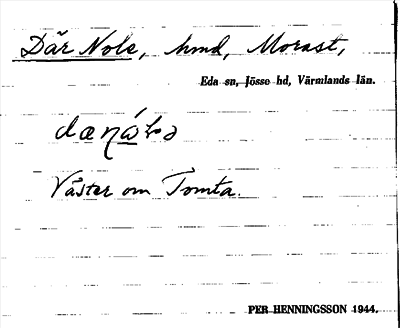 Där Nole, hmd, Morast,
Eda sn, Jösse hd, Värmlands län.
Väster om Tomta.
PER HENNINGSSON 1944.